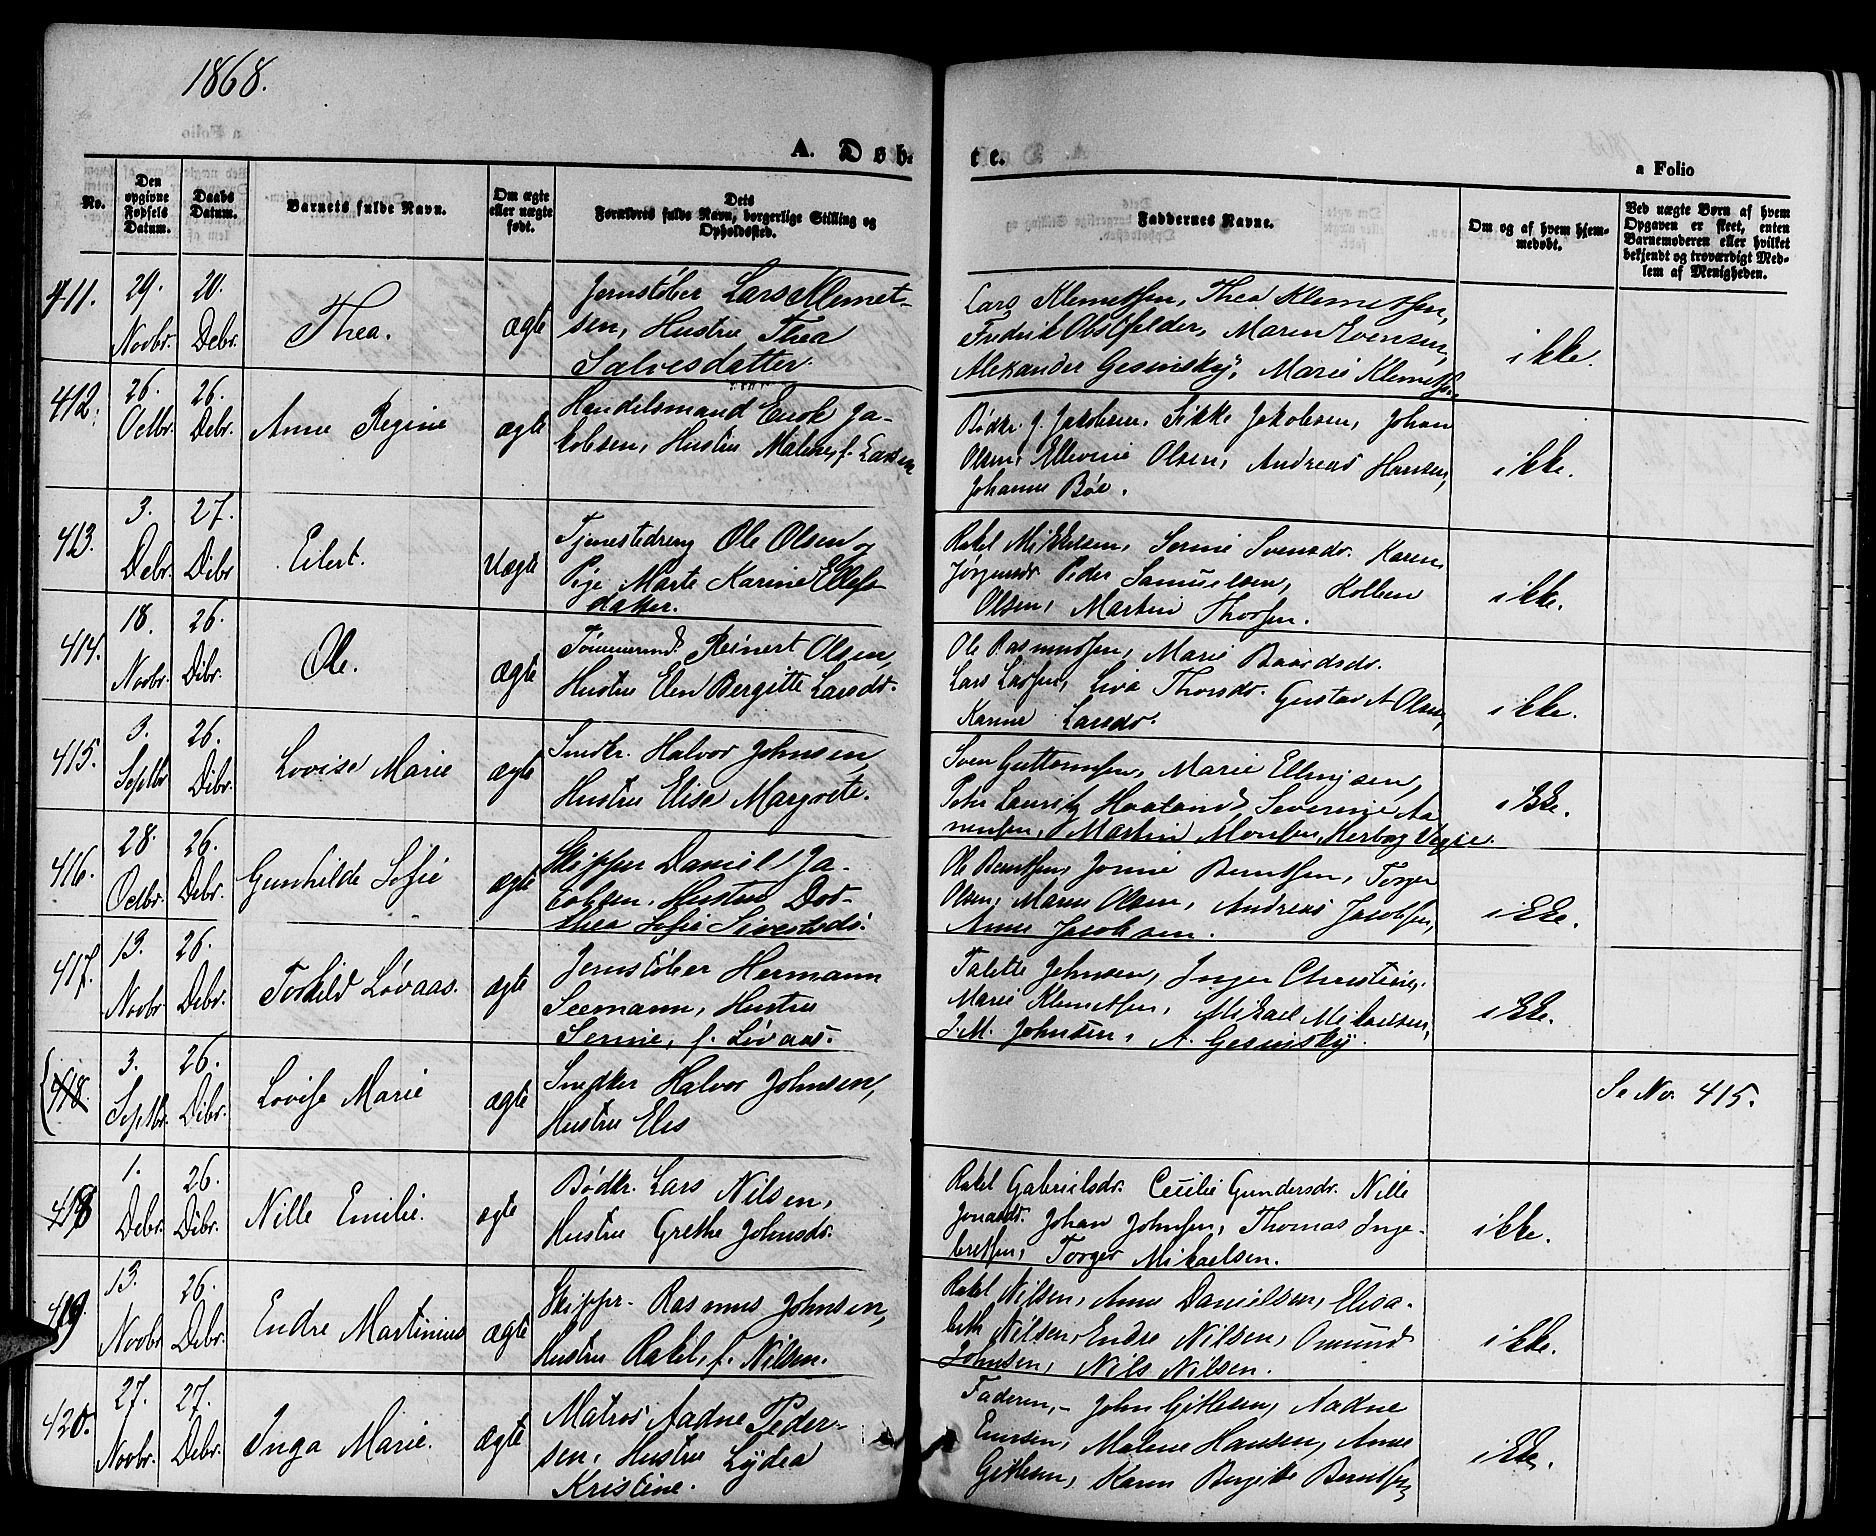 1868.
A. Døb-
te.
a Folio
No.
Den opgivne Fødsels Datum.
Daabs Datum.
Barnets fulde Navn.
Om ægte eller uægte født.
Dets Forældres fulde Navn, borgerlige Stilling og Opholdssted.
Faddernes Navne.
Om og af hvem hjemmedøbt.
Ved uægte Børn af hvem Opgaven er skeet, enten Barnemoderen eller hvilket bekjendt og troværdigt Medlem af Menigheden.
411.
29. Novbr.
20. Debr.
Thea.
ægte
Jernstøber Lars Klemet-
sen, Hustru Thea
Salvesdatter.
Lars Klemetsen, Thea Klemetsen,
Fredrik Obstfelder, Maren Evensen,
Alexander Gesinsky, Marie Klemetsen
ikke.
412.
26. Octbr.
26. Debr.
Anne Regine
ægte
Handelsmand Enok Ja-
kobsen, Hustru Malene, f. Larsen
Bødkr. J. Jakobsen, Sikke Jakobsen, Johan
Olsen, Ellevine Olsen, Andreas Hansen,
Johanne Bøe.
ikke.
413.
3. Debr.
27. Dibr
Eilert.
Uægte
Tjenestedreng Ole Olsen og
Pige Marte Karine Ellefs-
datter.
Rakel Mikkelsen, Serine Svensdr. Karen
Jørgensdr Peder Samuelsen, Kolben
Olsen, Martin Thorsen.
ikke.
414.
18. Novbr.
26. Dibr.
Ole.
ægte
Tømmermd Reinert Olsen,
Hustru Elen Bergitte Larsdr.
Ole Rasmussen, Marie Baardsdr.
Lars Larsen, Siva Thorsdr. Gustav A Olsen,
Larsdr.
ikke.
415.
3. Septbr
26. Dibr.
Lovise Marie
ægte
Snedkr. Halvor Johnsen,
Hustru Elise Margrete.
Sven Guttormsen, Marie Ellingsen,
Peder Lauritz Haaland, Severine Aa-
nensen, Martin Monsen, Herborg
ikke.
416.
28. Octbr.
26. Debr.
Gunhilde Sofie
ægte
Skipper Daniel Ja-
cobsen, Hustru Dor-
thea Sofie Sivertsdr.
Ole Berntsen, Jonine Berntsen, Torger
Olsen, Maren Olsen, Andreas Jacobsen,
Anne Jacobsen.
ikke.
417.
13. Novbr
26. Debr.
Torkild Løvaas.
ægte
Jernstøber Hermann
Seemann, Hustru
Serine, f. Løvaas.
Talette Johnsen, Inger Christine,
Marie Klemetsen, Mikael Mikaelsen,
J. M. Johnsen, A. Gesinsky.
ikke.
418.
3. Septbr.
26. Dibr.
Lovise Marie
ægte
Snedker Halvor Johnsen,
Hustru Elis
Se No. 415.
418
1. Debr.
26. Dibr.
Nille Emilie.
ægte
Bødkr. Lars Nilsen,
Hustru Grethe Johnsdr.
Rakel Gabrielsdr. Cecilie Gundersdr. Nille
Jonasdr. Johan Johnsen, Thomas Inge-
bretsen, Torger Mikaelsen.
ikke.
419.
13. Novbr.
26. Debr.
Endre Martinius
ægte
Skippr. Rasmus Johnsen,
Hustru Rakel, f. Nilsen.
Rakel Nilsen, Anne Danielsen, Elisa-
beth Nilsen, Endre Nilsen, Omund
Johnsen, Nils Nilsen.
ikke.
420.
27. Novbr.
27. Debr.
Inga Marie.
ægte
Matros Aadne Peder-
sen, Hustru Lydia
Kristine.
Faderen, John Gitlesen, Aadne
Malene Hansen, Anne
Gitlesen, Karen Bergitte Berntsen
ikke.